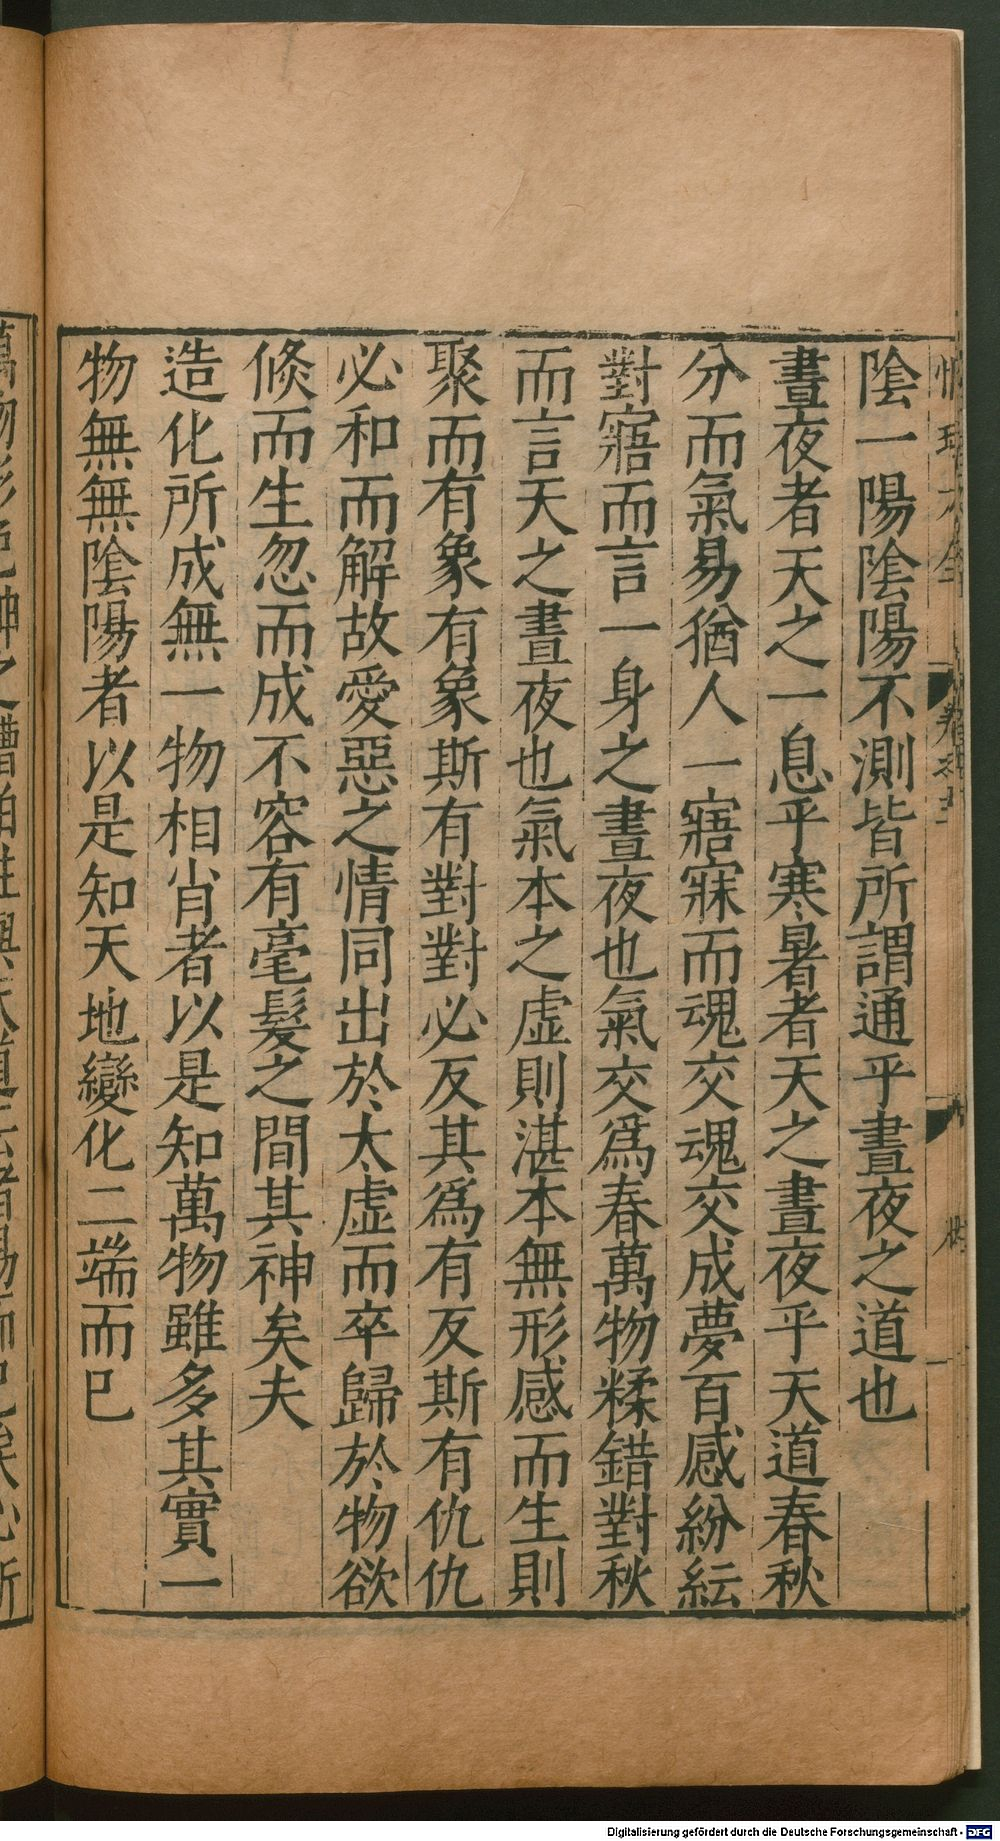 陰一陽陰陽不測皆所謂通乎晝夜之道也
晝夜者天之一息乎寒暑者天之晝夜乎天道春秋
分而氣易猶人一寤寐而魂交魂交成夢百感紛紜
對寤而言一身之晝夜也氣交爲春萬物糅錯對秋
而言天之晝夜也氣本之虛則湛本無形感而生則
聚而有象有象斯有對對必反其爲有反斯有仇仇
必和而解故愛惡之情同出於太虛而卒歸於物欲
倏而生忽而成不容有毫髮之間其神矣夫
造化所成無一物相肖者以是知萬物雖多其實一
物無無陰陽者以是知天地變化二端而已
Digitalisierung gefördert durch die Deutsche Forschungsgemeinschaft - DFG